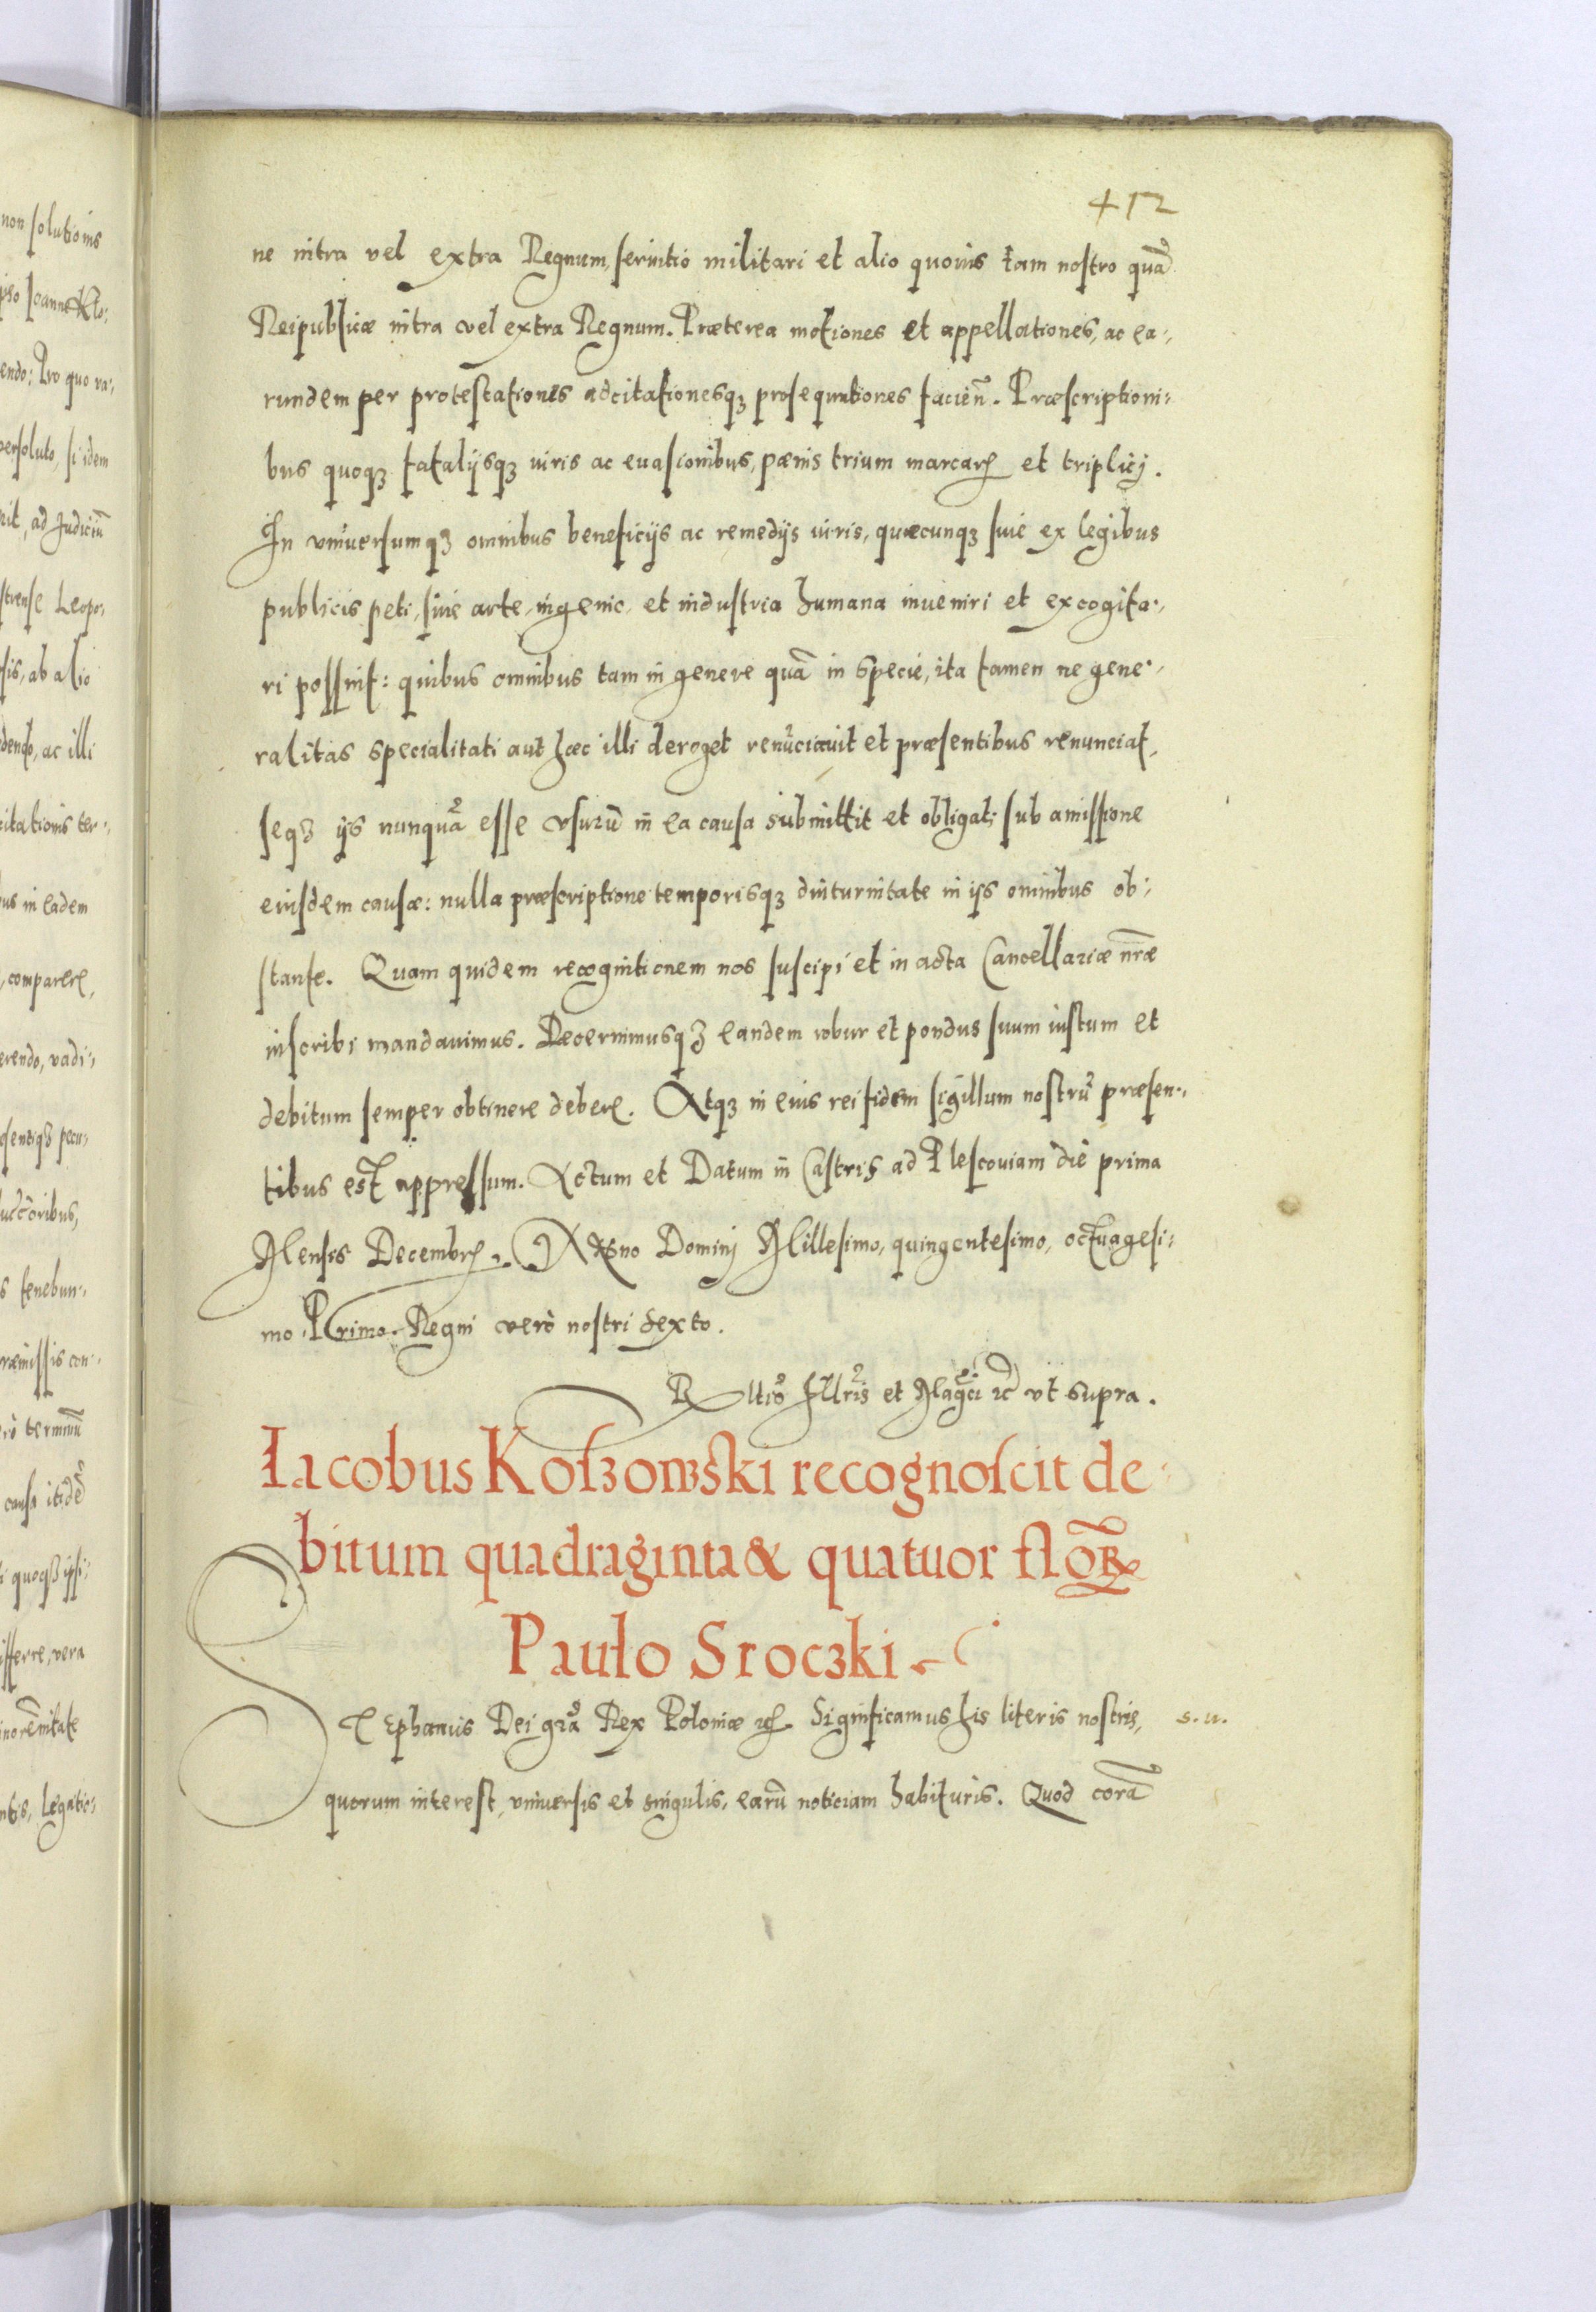 412
ne intra vel extra Regnum, seruitio militari et alio quouis tam nostro quã
Reipublicæ intra vel extra Regnum. Præterea motiones et appellationes, ac ea-
rundem per protestationes adcitationesqꝫ prosequutiones facień. Præscriptioni-
bus quoqꝫ fatalijsqꝫ iuris ac euasionibus, pœnis trium marcarꝝ et triplicj.
In vniuersumqꝫ omnibus beneficijs ac remedijs iuris, quæcunqꝫ siue ex legibus
publicis peti, siue arte, ingenio, et industria humana inueniri et excogita-
ri possint: quibus omnibus tam in genere quã in specie, ita tamen ne gene-
ralitas specialitati aut hæc illi deroget renũciauit et præsentibus renunciat,
seqꝫ ijs nunquã esse vsurũ in ea causa submittit et obligat; sub amissione
eiusdem causæ: nulla præscriptione temporisqꝫ diuturnitate in ijs omnibus ob-
stante. Quam quidem recognitionem nos suscipi et in acta Cancellariæ nr̃æ
inscribi mandauimus. Decernimusqꝫ eandem robur et pondus suum iustum et
debitum semper obtinere debere. Atqꝫ in eius rei fidem sigillum nostrũ præsen-
tibus est appressum. Actum et Datum in Castris ad Plescouiam die prima
Mensis Decembrꝭ. Anno Dominj Millesimo, quingentesimo, octuagesi-
mo Primo. Regni verò nostri sexto.
Rltiõ Illr̃is et Mag̃ci ꝛc vt supra.
Iacobus Koſzowski recognoſcit de-
bitum quadraginta & quatuor florꝝ
Paulo Sroczki
Stephanus Dei grã Rex Poloniæ ꝛc̃. Significamus his literis nostris, s. n.
quorum interest, vniuersis et singulis, earũ noticiam habituris. Quod corã